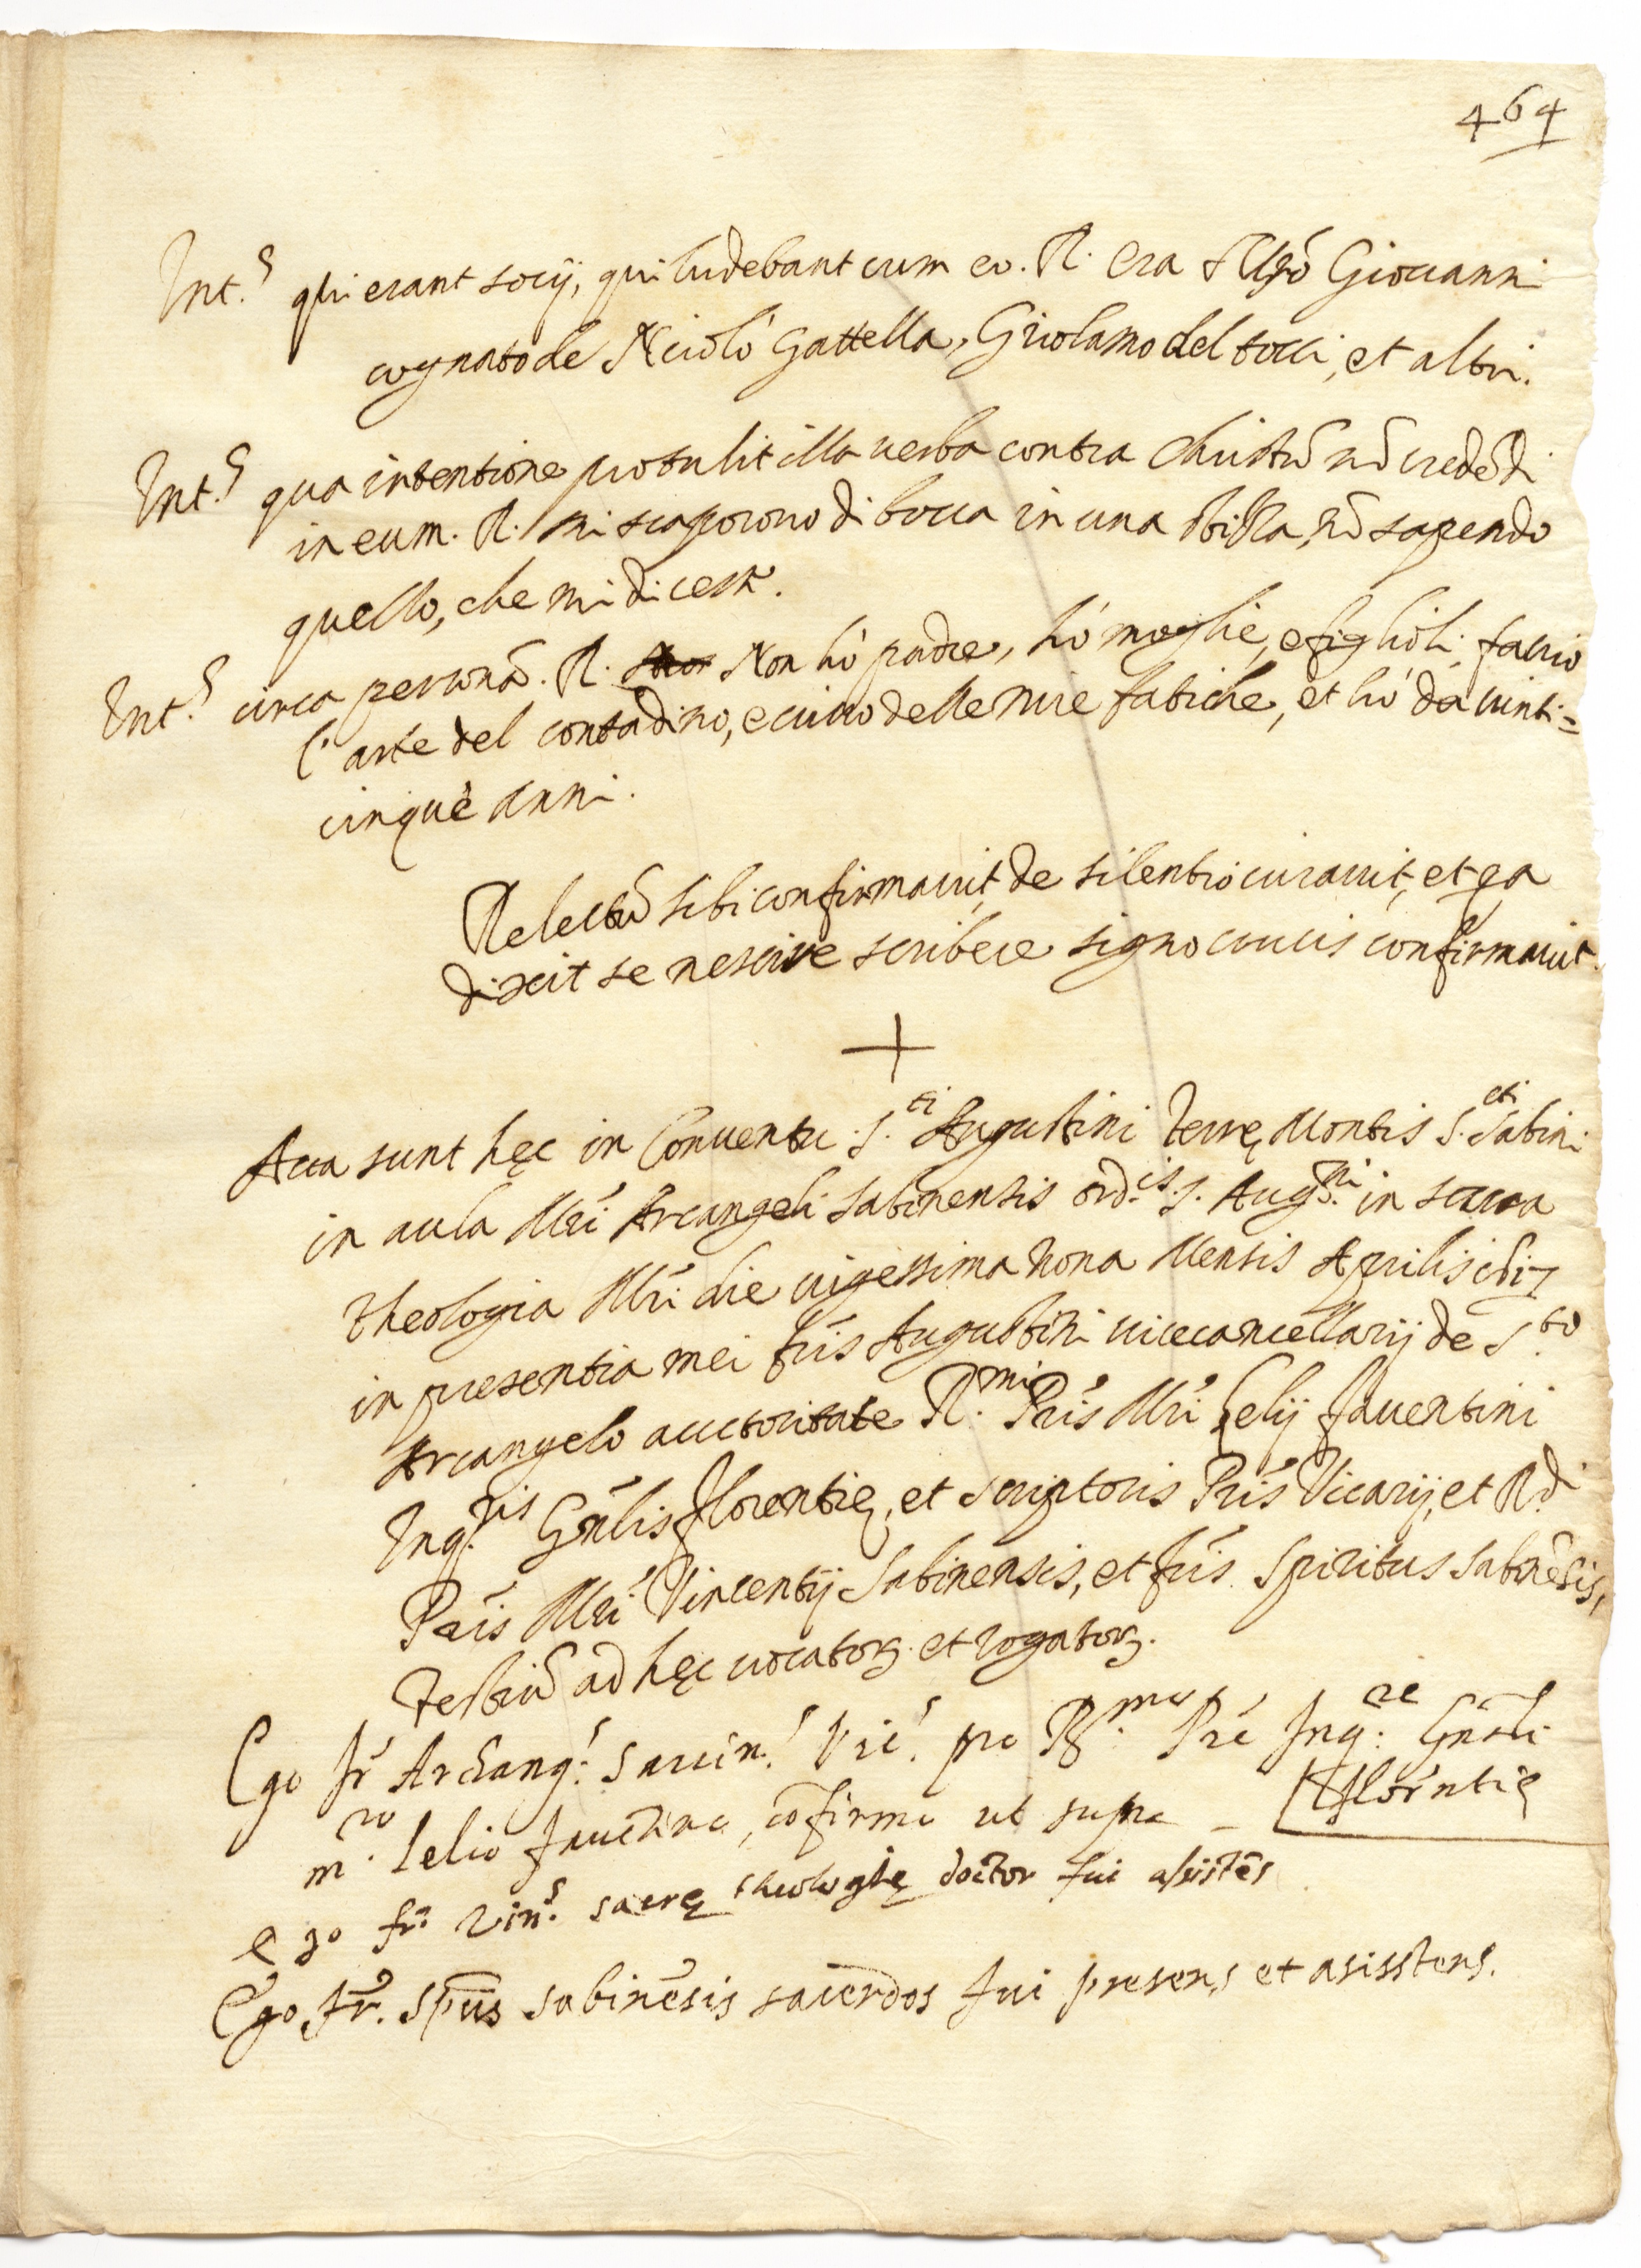 464
Int.s qui erant socij, qui ludebant cum eo. R. Era Giouanni
cognato de Nicolò Gattella, Girolamo del tocci, et altri.
Int.s qua intentione protulit illa uerba contra Christū nō credēdi
in eum. R. mi scaporono di bocca in una stizza, nō sapendo
quello, che mi dicessi.
Int.s circa personā. R. Non hò padre, hò moglie, e figlioli, faccio
l'arte del contadino, e uiuo delle mie fatiche, et hò da uinti=
cinque anni.
Relectū sibi confirmauit, de silentio iurauit, et qa
dixit se nescire scribere signo crucis confirmauit.
+
Acta sunt hęc in Conuentu S.ti Augustini Terrę Montis S.cti Sabini
in aula Mri Arcangeli sabinensis ord.is S. Aug.ni in sacra
theologia Mri die uigessima nona Mensis Aprilis
in presentia mei fris Augustini uicecancellarij de S.to
Arcangelo auctoritate R.mi Pris Mri Lelij fauentini
Inq.ris Gnlis florentię, et scriptoris Pris Vicarij, et R.di
Pris Mri Vincentij Sabinensis, et fris Spiritus Sabinēsis,
Testiū ad hęc uocatorȝ et rogatorȝ.
Ego fr Archang.s Sauin.s Vic.s pro R.mo Pre Inq.re Gnāli
florntię
m.ro Lelio fauētino, cōfirmo ut supra
ego fr. Vin.s sacrę theologię doctor fui assistēs
Ego fr. Spūs sabinēsis sacerdos fui presens et asisstens.